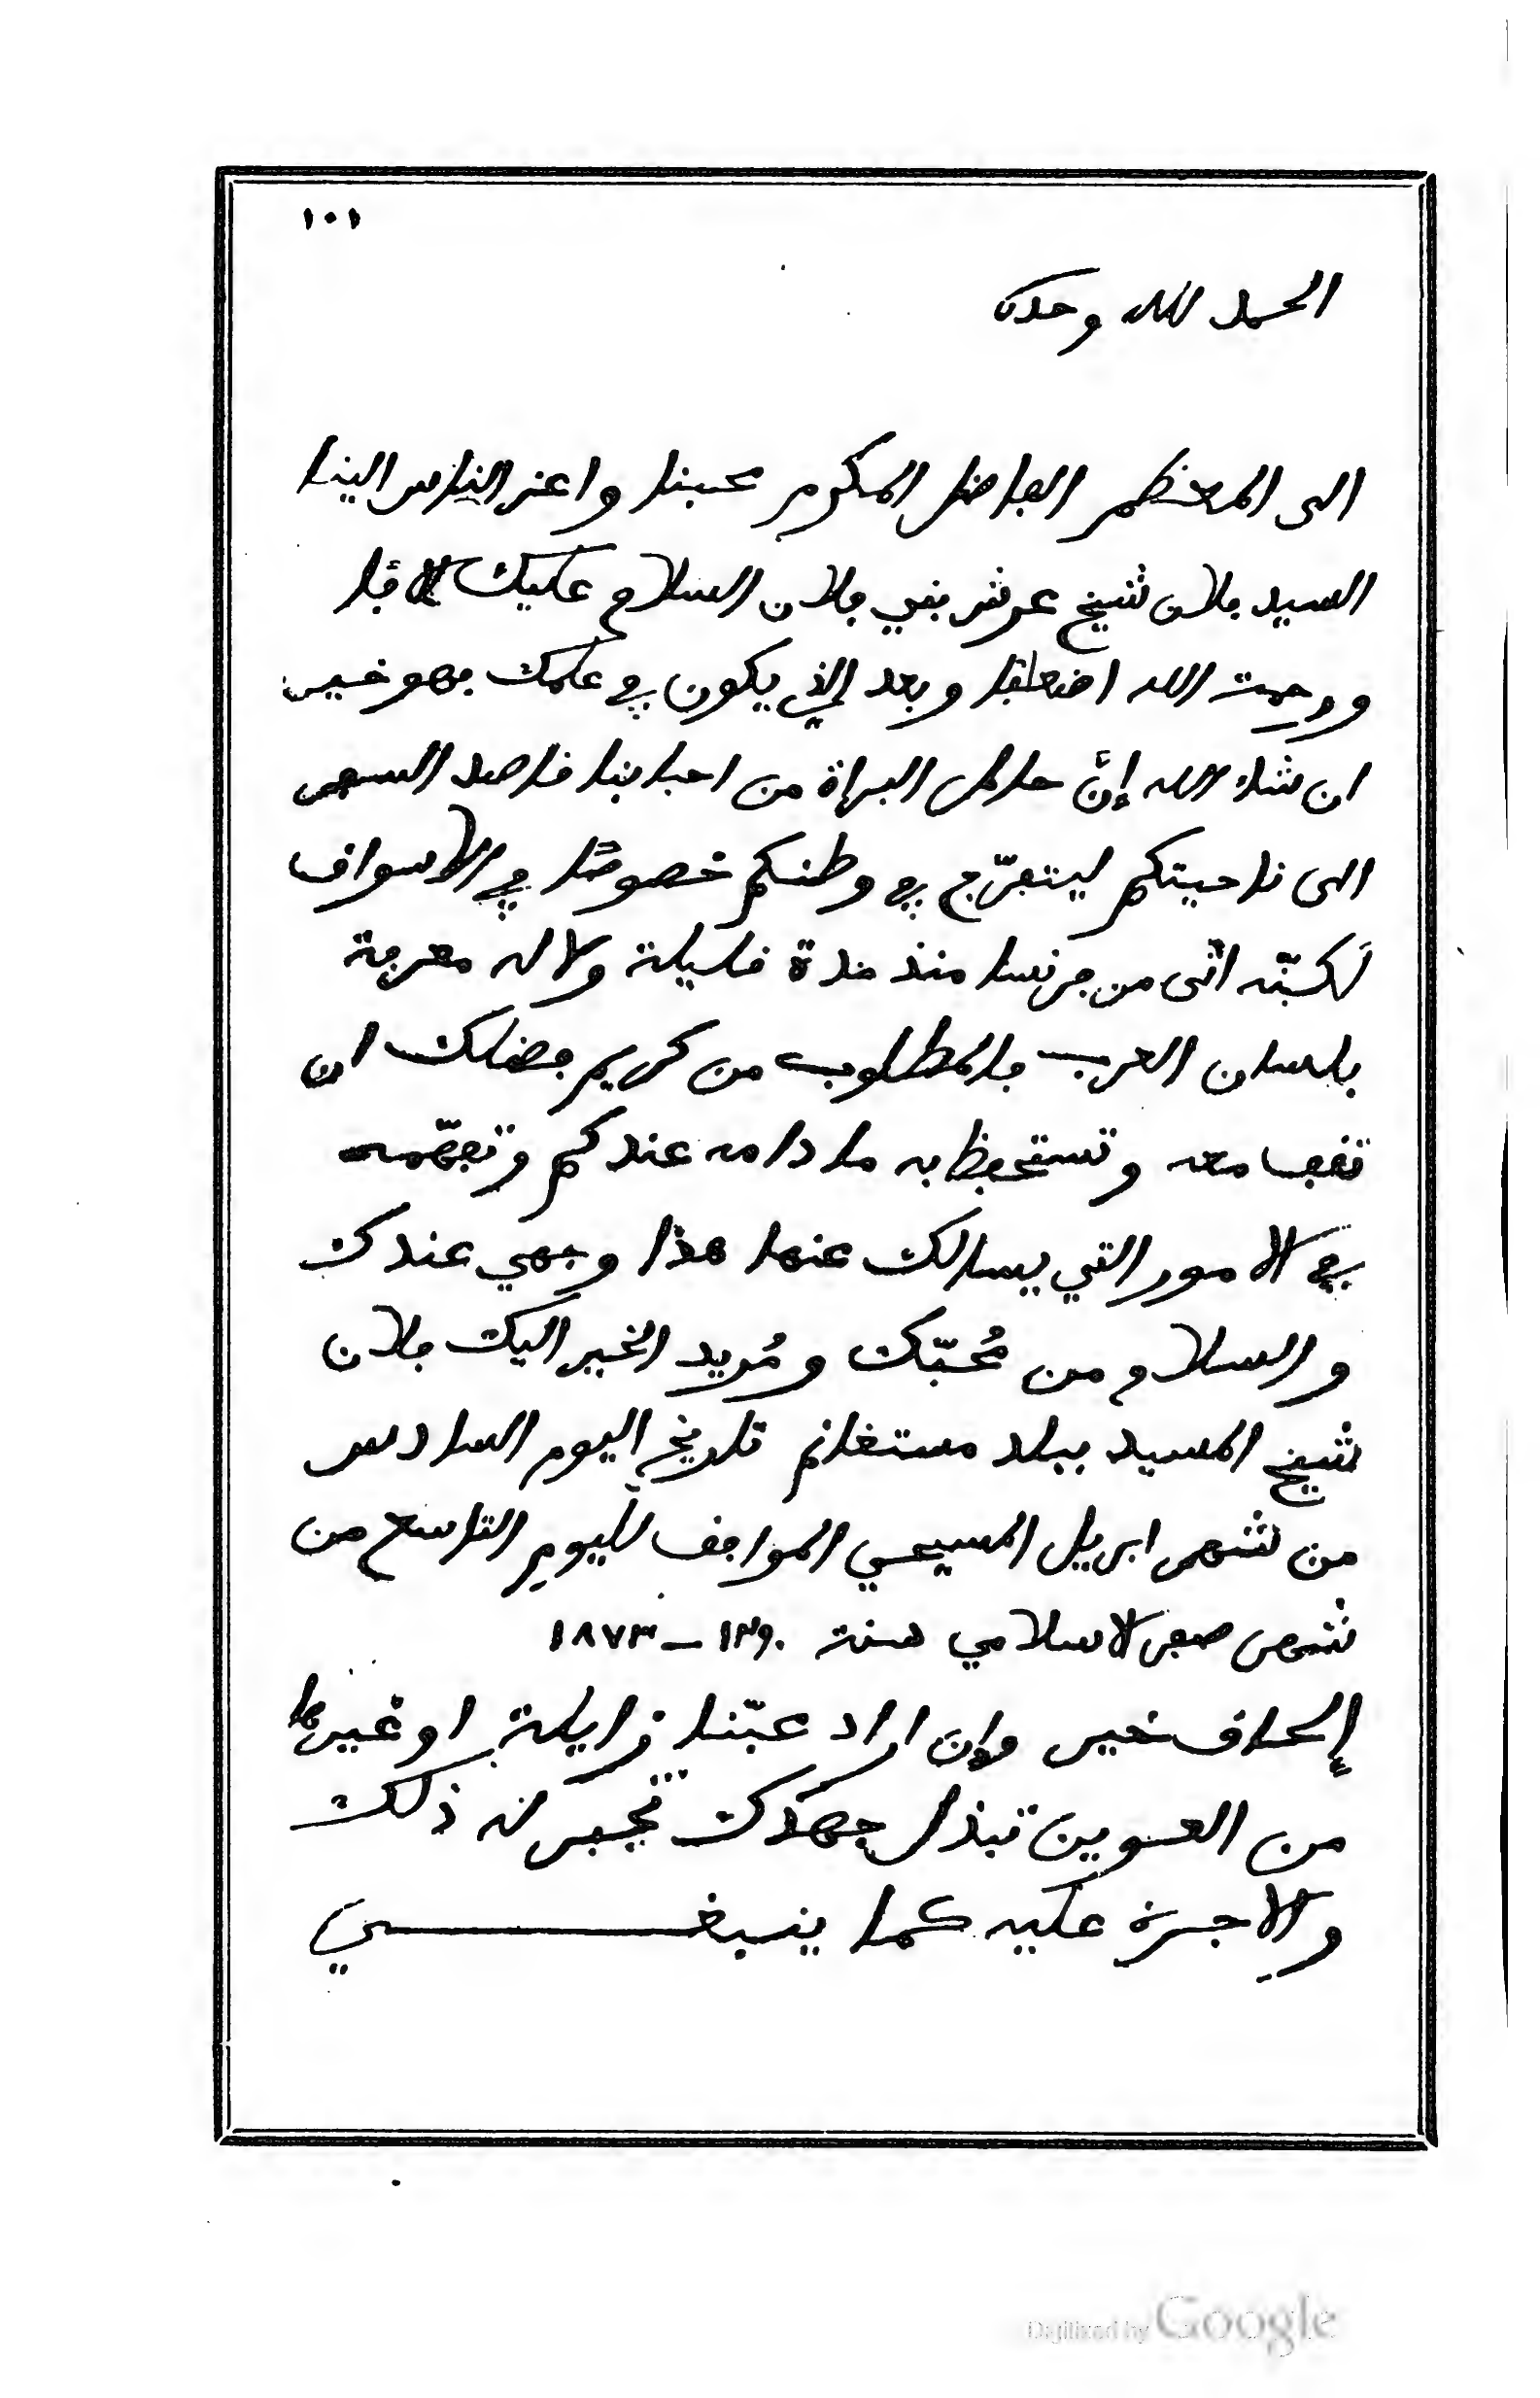 ١٠١
الحمد لله وحده
الى المعظم الفاضل المكرم محبنا واعز الناس الينا
السيد فلان شيخ عرش بني فلان السلام عليك الافا
ورحمت الله اضعافا وبعد الذي يكون في علمك فهو خير
ان شاء الله إنّ حامل البراة من احبابنا قاصد السفر
الى ناحيتكم ليتفرّج في وطنكم خصوصًا في الاسواق
لكنّه اتى من فرنسا منذ مدة قليلة ولا له معرفة
بلسان العرب فالمطلوب من كريم فضلك ان
تقف معه وتستحفظ به ما دامه عندكم وتفهّمه
في الامور التي يسالك عنها هذا وجهي عندك
والسلام من مُحبّك ومُريد الخير اليك فلان
شيخ المسيد ببلد مستغانم تاريخ اليوم السادس
من شهر ابريل المسيحي الموافق لليوم التاسع من
شهر صفر الاسلامي سنة ١٢٩٠ – ١٨٧٣
إلحاق خير وان اراد محبّنا زايلة او غيرها
من العوين تبذل جهدك تجبر له ذلك
والاجرة عليه كما ينبغي
Digitized by Google